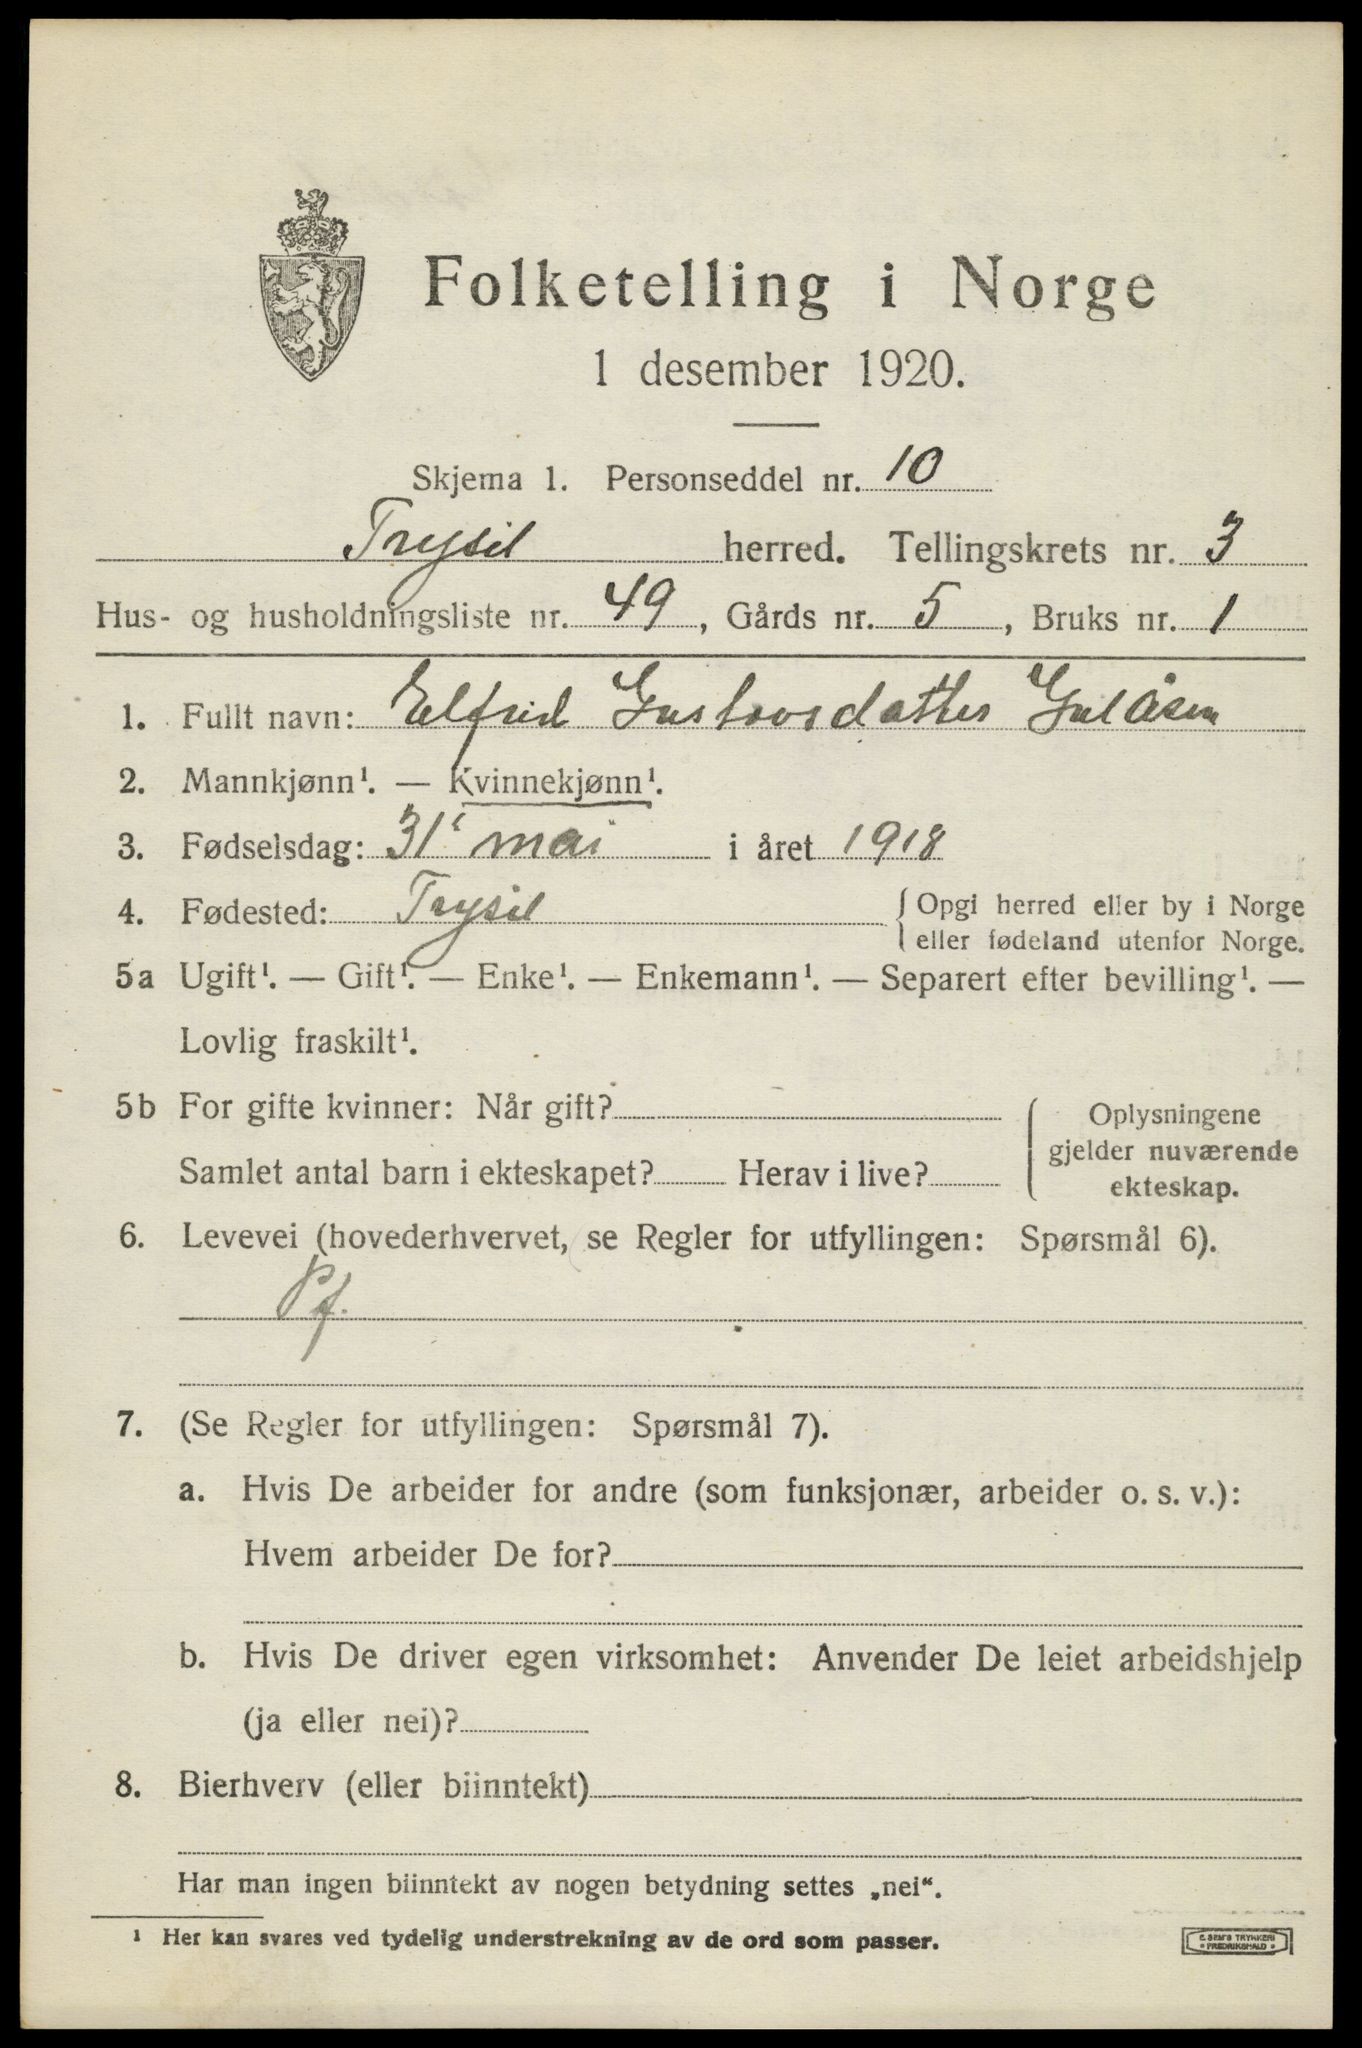 Folketelling i Norge
1 desember 1920.
Skjema 1. Personseddel nr. 10
Trysil herred. Tellingskrets nr. 3
Hus- og husholdningsliste nr. 49, Gårds nr. 5, Bruks nr. 1
1. Fullt navn: Elfrid Gustavsdatter Galåsen
2. Mannkjønn¹. — Kvinnekjønn¹.
3. Fødselsdag: 31' mai i året 1918
4. Fødested: Trysil { Opgi herred eller by i Norge
eller fødeland utenfor Norge.
5a Ugift¹. — Gift¹. — Enke¹. — Enkemann¹. — Separert efter bevilling¹. —
Lovlig fraskilt¹.
5b For gifte kvinner: Når gift? { Oplysningene
gjelder nuværende
Samlet antal barn i ekteskapet? Herav i live? ekteskap.
6. Levevei (hovederhvervet, se Regler for utfyllingen: Spørsmål 6).
Pf.
7. (Se Regler for utfyllingen: Spørsmål 7).
a. Hvis De arbeider for andre (som funksjonær, arbeider o. s. v.):
Hvem arbeider De for?
b. Hvis De driver egen virksomhet: Anvender De leiet arbeidshjelp
(ja eller nei)?
8. Bierhverv (eller biinntekt)
Har man ingen biinntekt av nogen betydning settes „nei“.
¹ Her kan svares ved tydelig understrekning av de ord som passer.
E. SEM'S TRYKKERI
• FREDRIKSHALD •